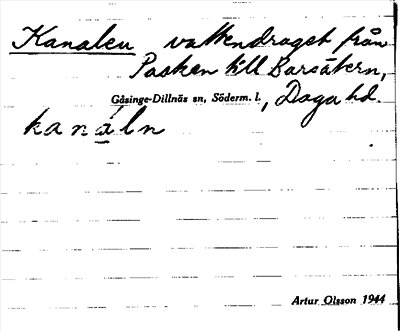 Kanalen vattendraget från
Posken till Borsätern,
Gåsinge-Dillnäs sn, Söderm. l., Daga hd.
kanáln
Artur Olsson 1944